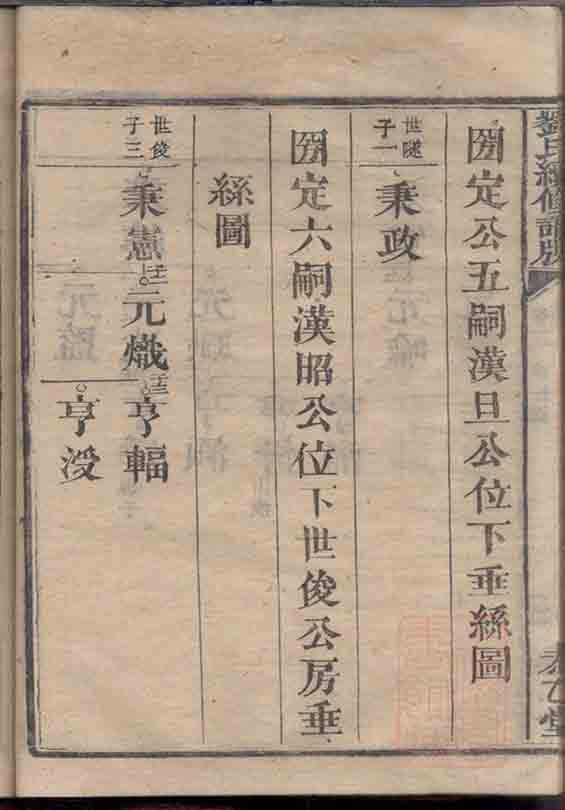 劉氏續修譜
乙堂
定公五嗣漢旦公位下垂絲圖
世隧
子一
秉政
定六嗣漢昭公位下世俊公房垂
絲圖
世俊
子三
秉憲
元熾
亨輻
亨